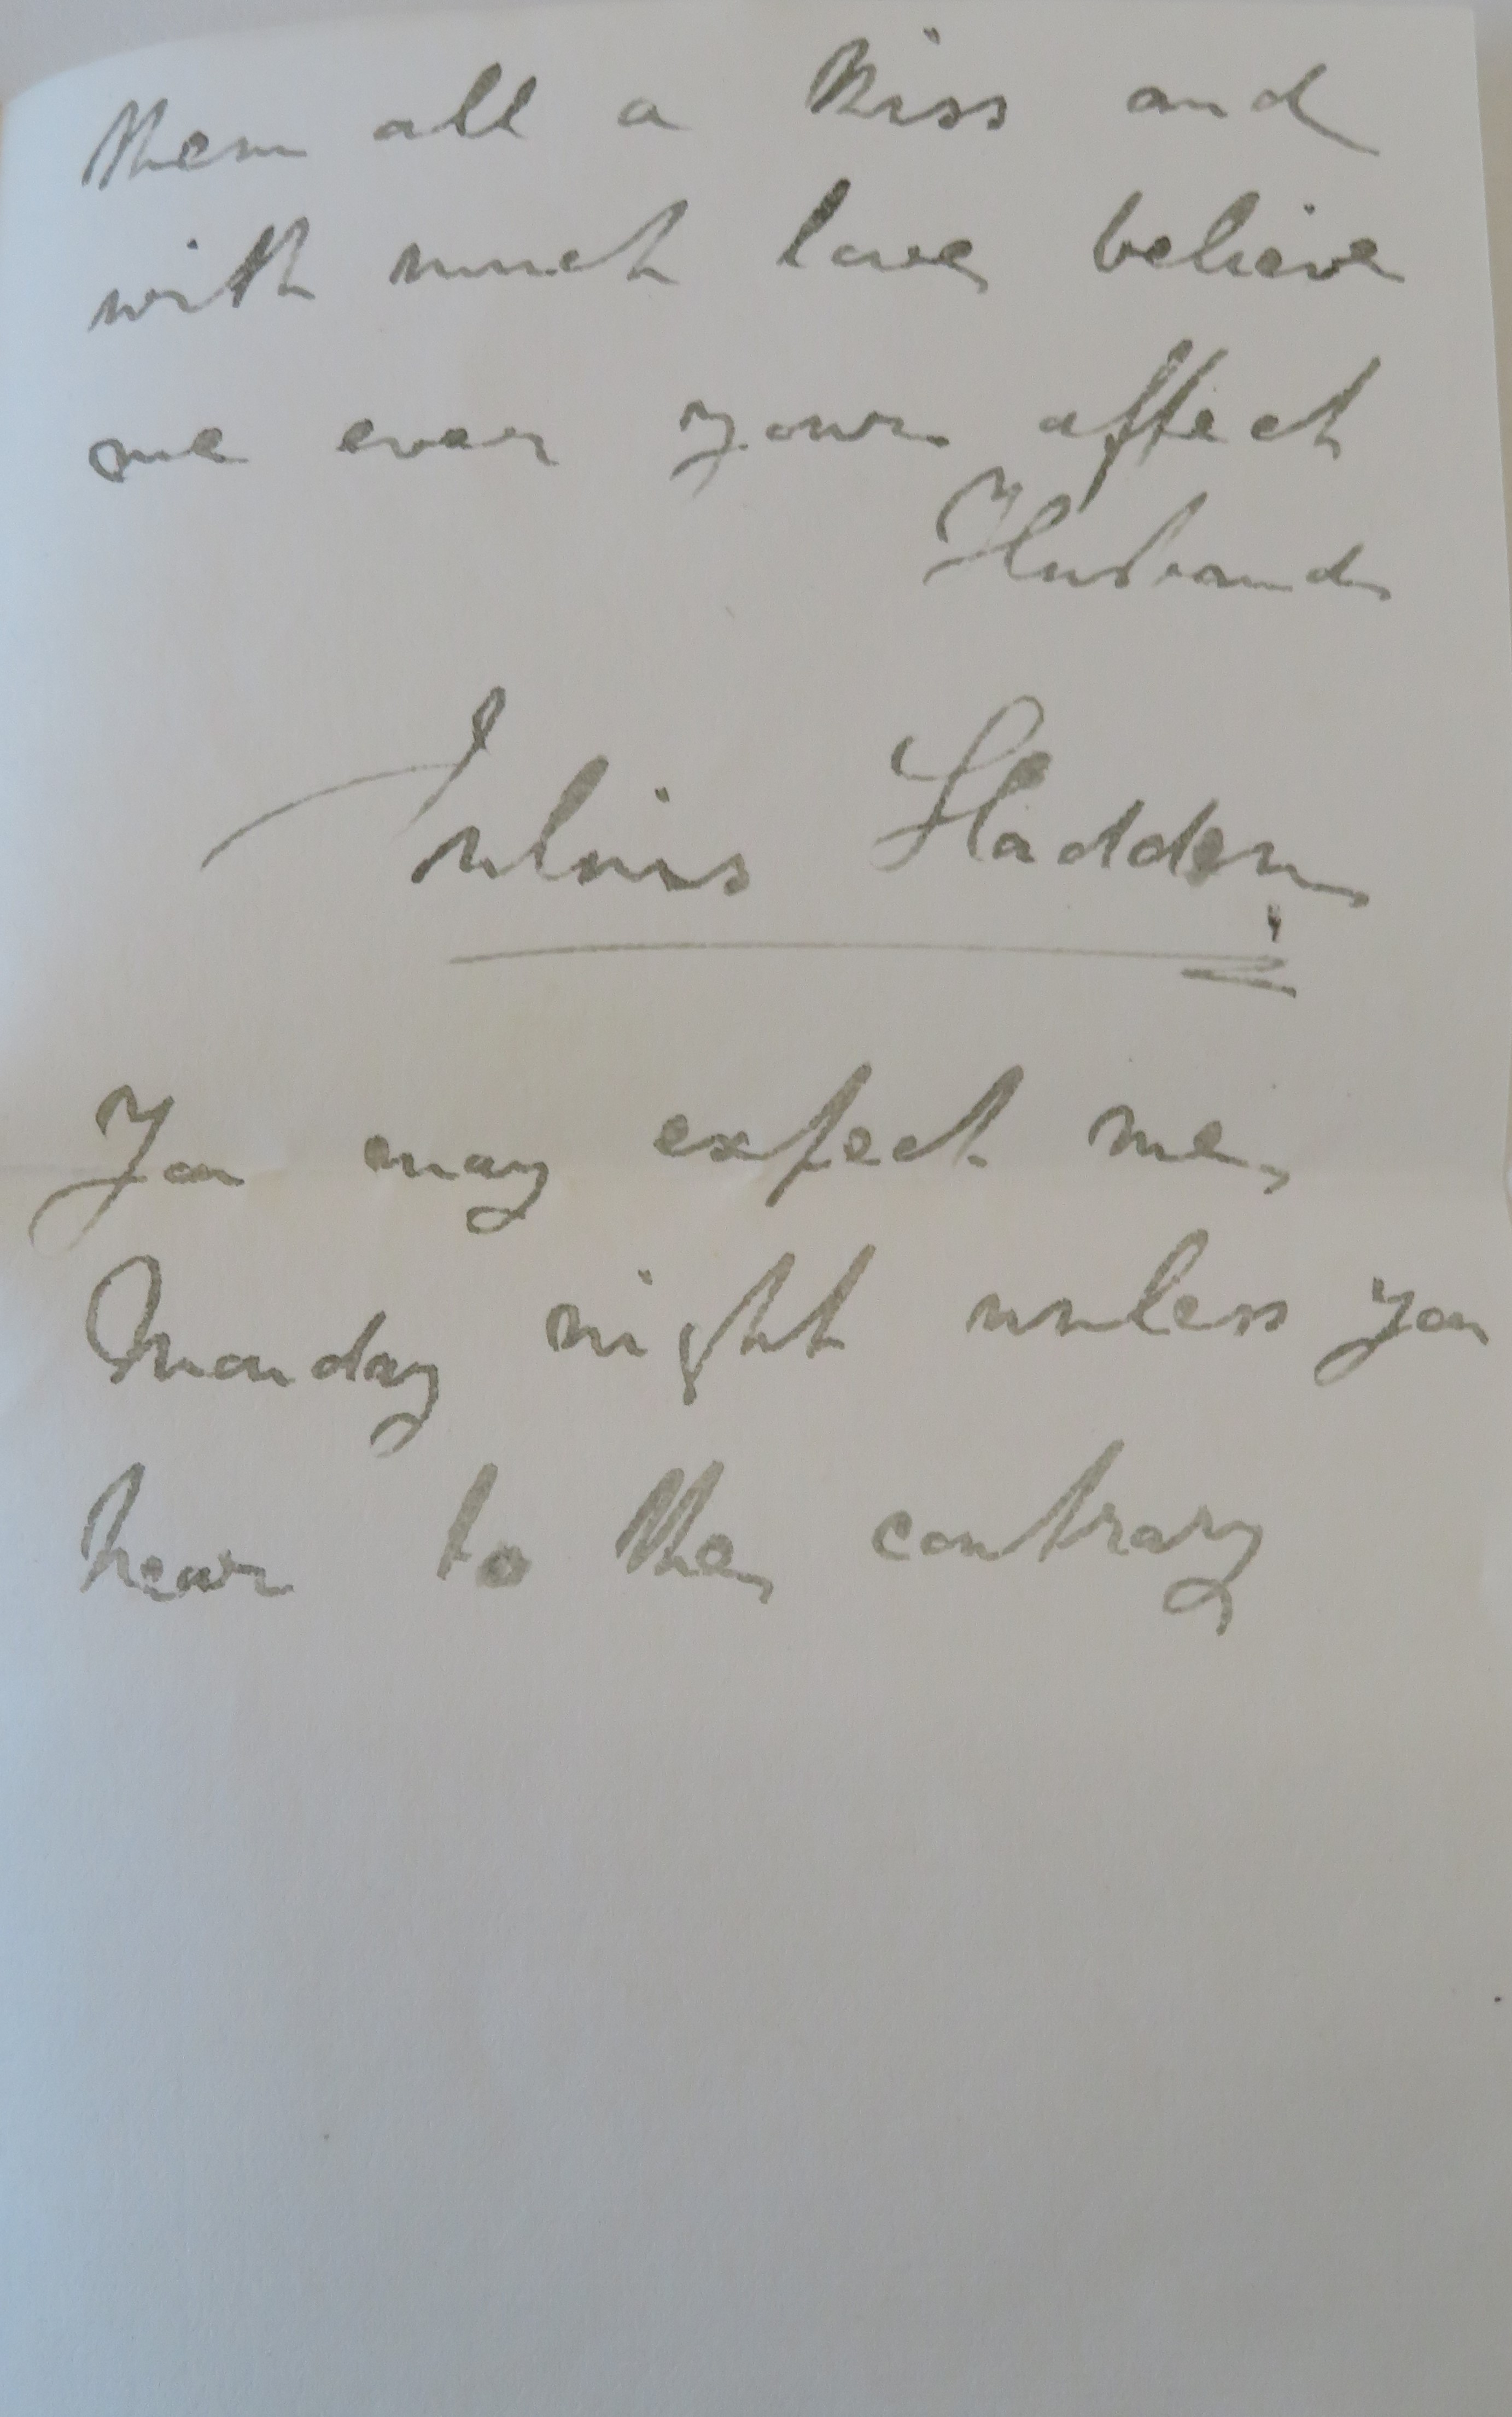 them all a kiss and
with much love believe
me ever your affect
Husband
Julius Sladden
You may expect me
Monday night unless you
hear to the contrary